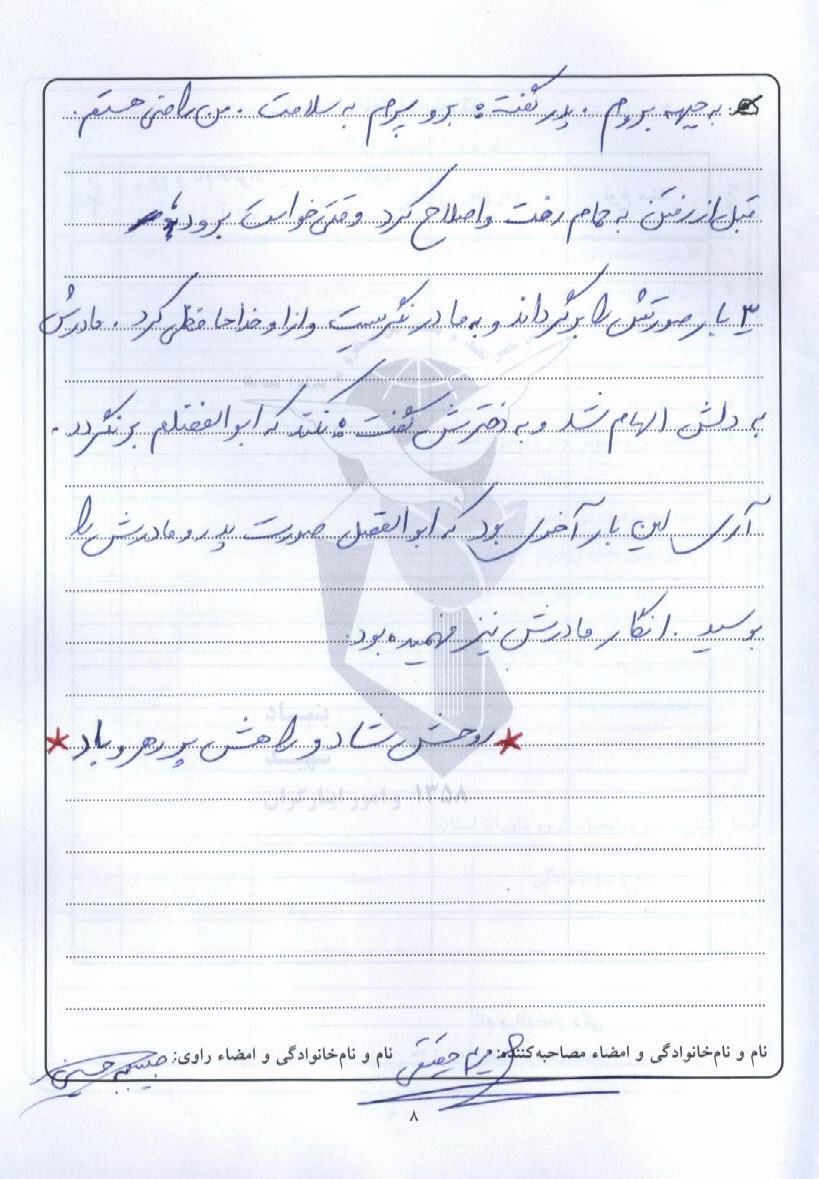 به جبهه بروم . پدر گفت: برو پسرم به سلامت . من راضی هستم .
قبل از رفتن به حمام رفت و اصلاح کرد وقتی خواست برود
۳ بار صورتش را برگرداند و به مادر نگریست و از او خداحافظی کرد . مادرش
به دلش الهام شد و به دخترش گفت: نکند که ابوالفضلم برنگردد .
آری این بار آخری بود که ابوالفضل صورت پدر و مادرش را
بوسید . انگار مادرش نیز فهمیده بود .
* روحش شاد و راهش پر رهرو باد *
بنیاد
شهید
و امور ایثارگران
۱۳۵۸
نام و نام‌خانوادگی و امضاء مصاحبه‌کننده: مریم حقیقی
نام و نام‌خانوادگی و امضاء راوی: حسینی
۸